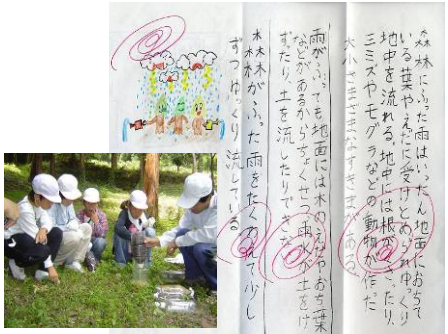 森林にふった雨はいったん地面におちて
いる葉やえだに受けとめられゆっくり
地中を流れる。地中には根がはったり、
ミミズやモグラなどの動物が作った
大小さまざまなすきまがある
雨がふっても地面には木のえだやおち葉
などがあるからちょくせつ雨水が土をけ
ずったり、土を流したりできな
森林がふった雨をたくわえて少し
ずつゆっくり流している